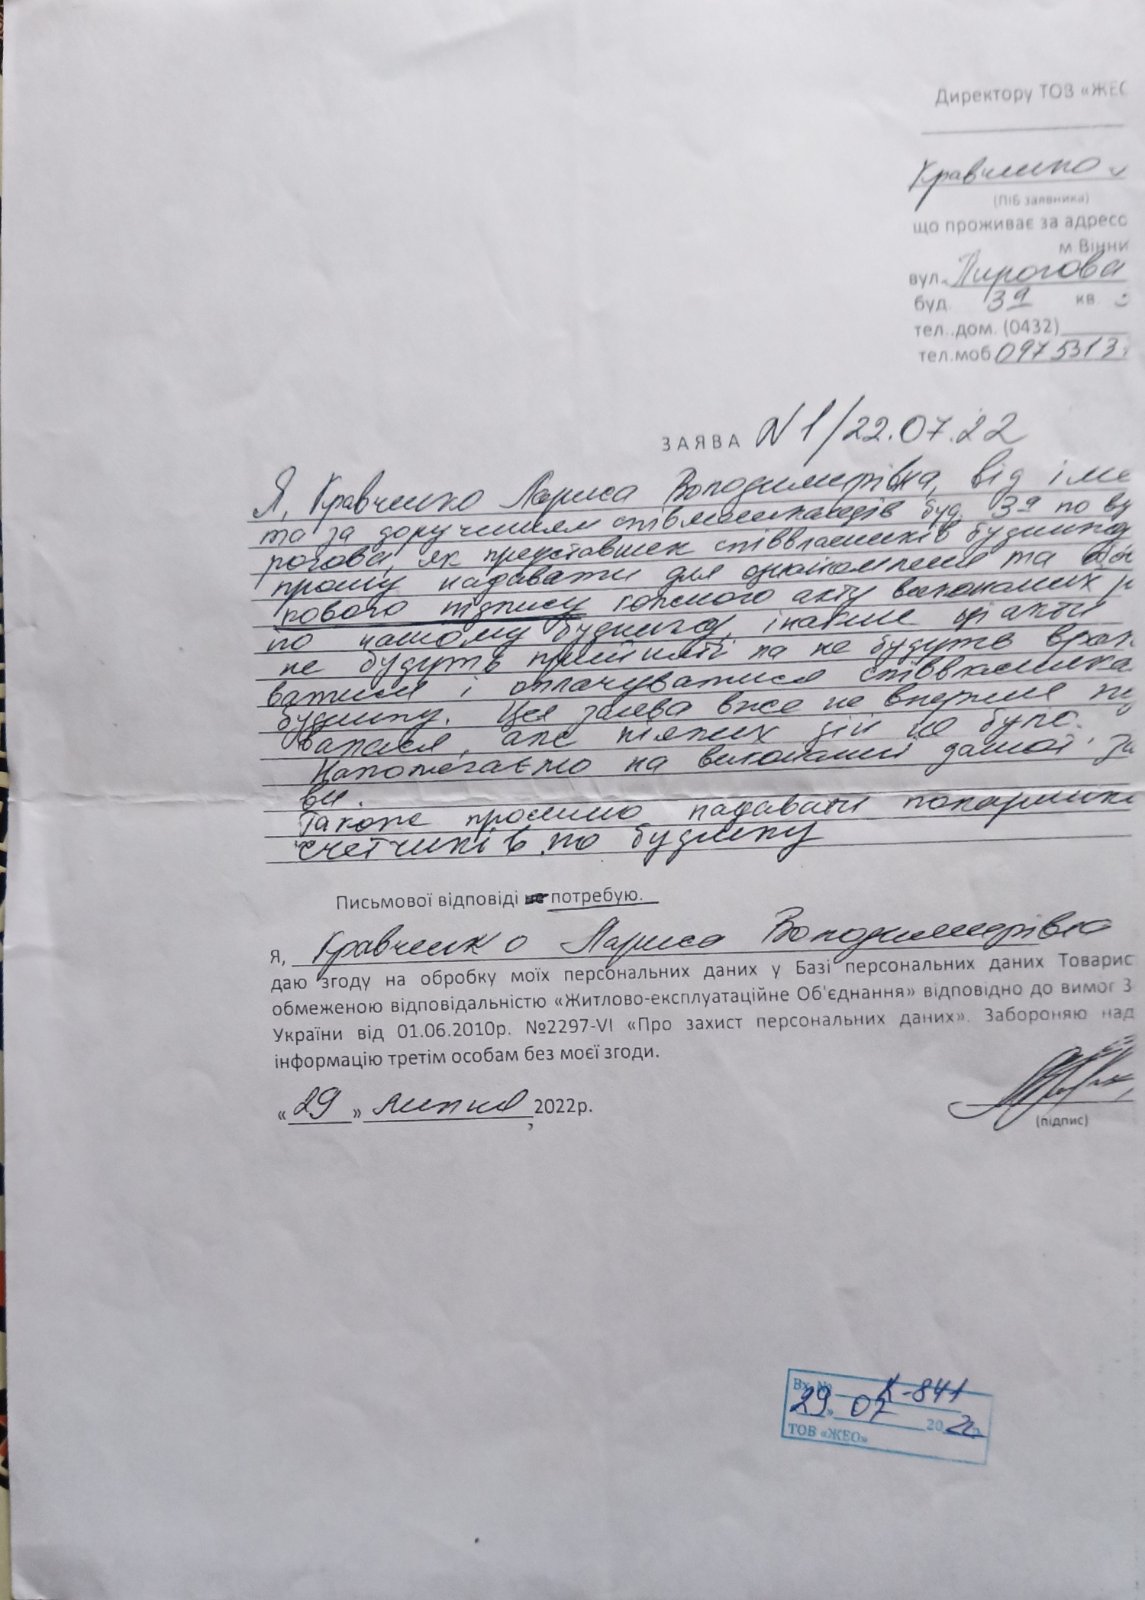 Директору ТОВ «ЖЕО
Кравченко
(ПІБ заявника)
що проживає за адресо
м Вінни
вул. Пирогова
буд. 39 кв.
тел..дом. (0432)
тел.моб 0975313
ЗАЯВА N1/22.07.22
Я, Кравченко Лариса Володимирівна, від іме
та за дорученням співмешканців буд. 39 по ву
рогова, як представник співвласників будинку
прошу надавати для ознайомлення та
кового підпису кожного акту виконаних р
по нашому будинку, інакше ці акти
не будуть прийняті та не будуть врах
ватися і оплачуватися співвласника
будинку. Ця заява вже не вперше по
валася, але ніяких дій не було.
Наполягаємо на виконанні даної за
ви.
Також просимо надавати показники
счетчиків по будинку
Письмової відповіді потребую.
Я, Кравченко Лариса Володимирівна
даю згоду на обробку моїх персональних даних у Базі персональних даних Товарис
обмеженою відповідальністю «Житлово-експлуатаційне Об'єднання» відповідно до вимог З
України від 01.06.2010р. №2297-VI «Про захист персональних даних». Забороняю над
інформацію третім особам без моєї згоди.
«29» липня 2022р.
(підпис)
Вх. № К-841
29» 07 2022
ТОВ «ЖЕО»